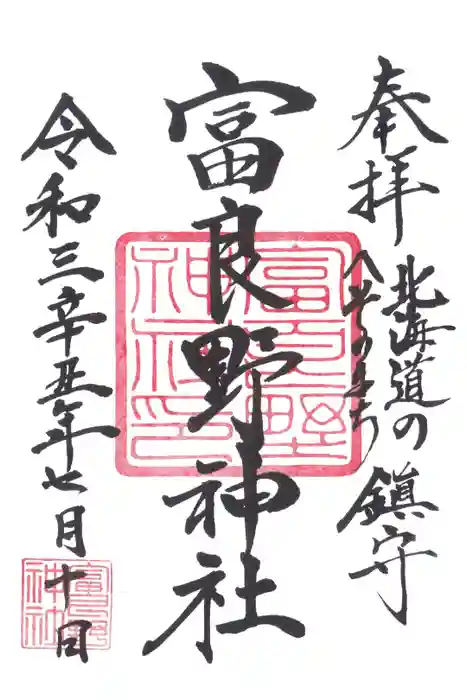 奉拝
北海道の
へそのまち
鎮守
富良野神社
富良野
神社印
令和三辛丑年七月十日
富良野
神社